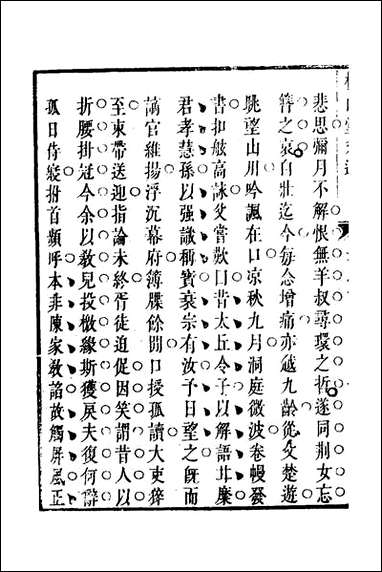 悲思彌月不解恨無羊叔尋環之哲遂同荆女忘
簪之哀自壯迄今每念增痛亦越九齡從父楚遊
眺望山川吟諷在口凉秋九月洞庭微波卷幔發
書扣舷高詠父嘗歎曰昔太丘令子以解語廿廉
君孝慧孫以强識稱寶衰宗有汝予日望之旣而
謫官維揚浮沉幕府簿牒餘閒口授孤讀大吏猝
至束帶送迎指論未終胥徒迫促因笑謂昔人以
折腰掛冠今余以敎兒投檄緣斯獲戾夫復何辭
孤日侍寢拊首類呼本非陳家敎諂故觸屛風正